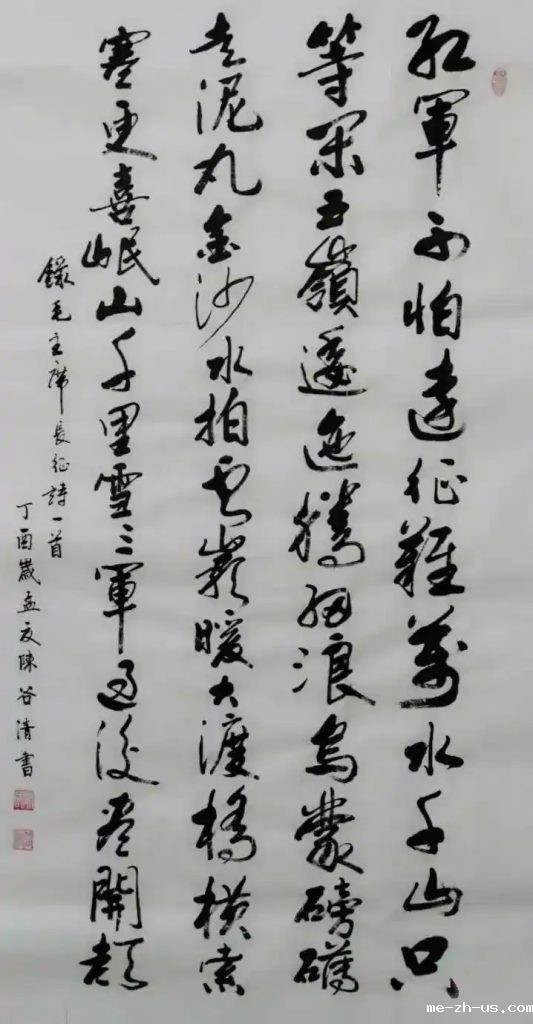 紅軍不怕遠征難萬水千山只
等閑五嶺逶迤騰細浪烏蒙磅礴
走泥丸金沙水拍雲崖暖大渡橋橫索
寒更喜岷山千里雪三軍過後盡開顏
錄毛主席長征詩一首
丁酉歲孟夏陳谷清書
me-zh-us.com